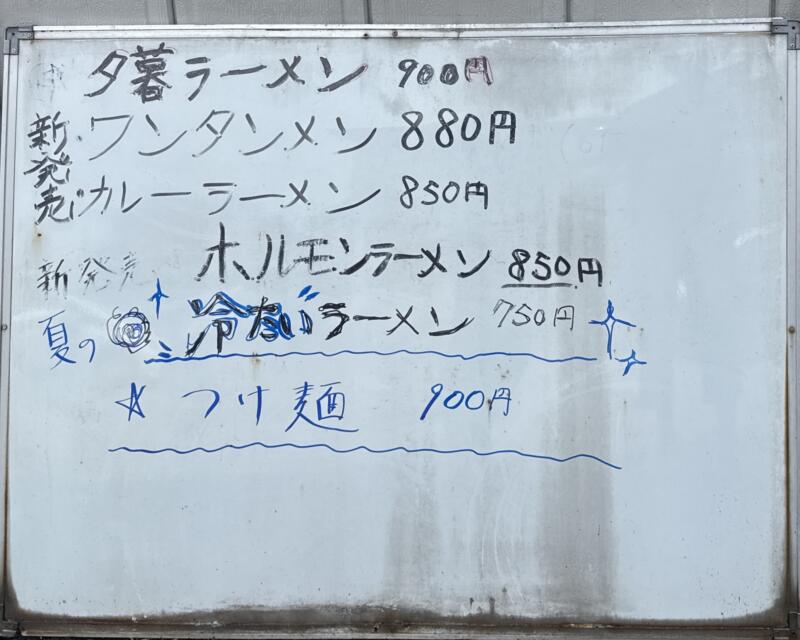 夕暮ラーメン 900円
新発売 ワンタンメン 880円
カレーラーメン 850円
新発売 ホルモンラーメン 850円
夏の 冷たいラーメン 750円
☆ つけ麺 900円